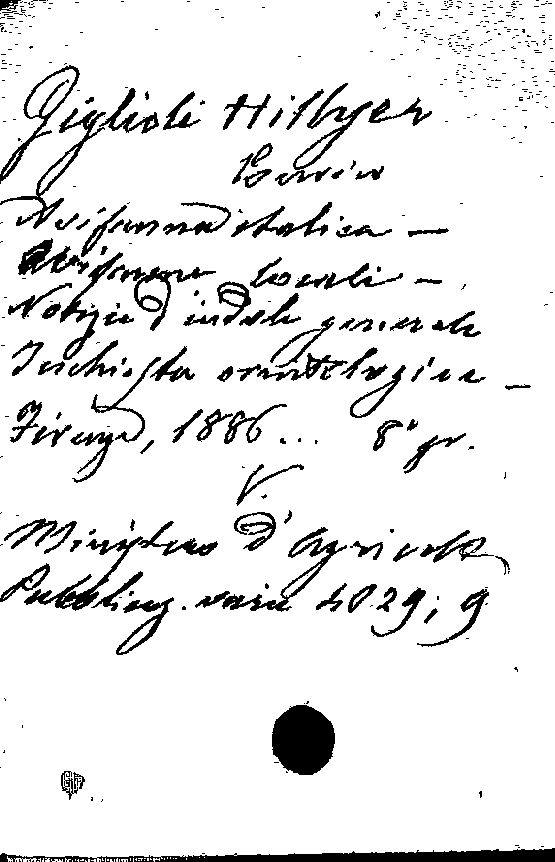 Giglioli Hillyer
Enrico
Avifauna italica —
Avifaune locali —
Notizie d'indole generale
Inchiesta ornitologica —
Firenze, 1886 ... 8° gr.
V.
Ministero d'Agricolt
Pubblicaz. varie 4029; 9